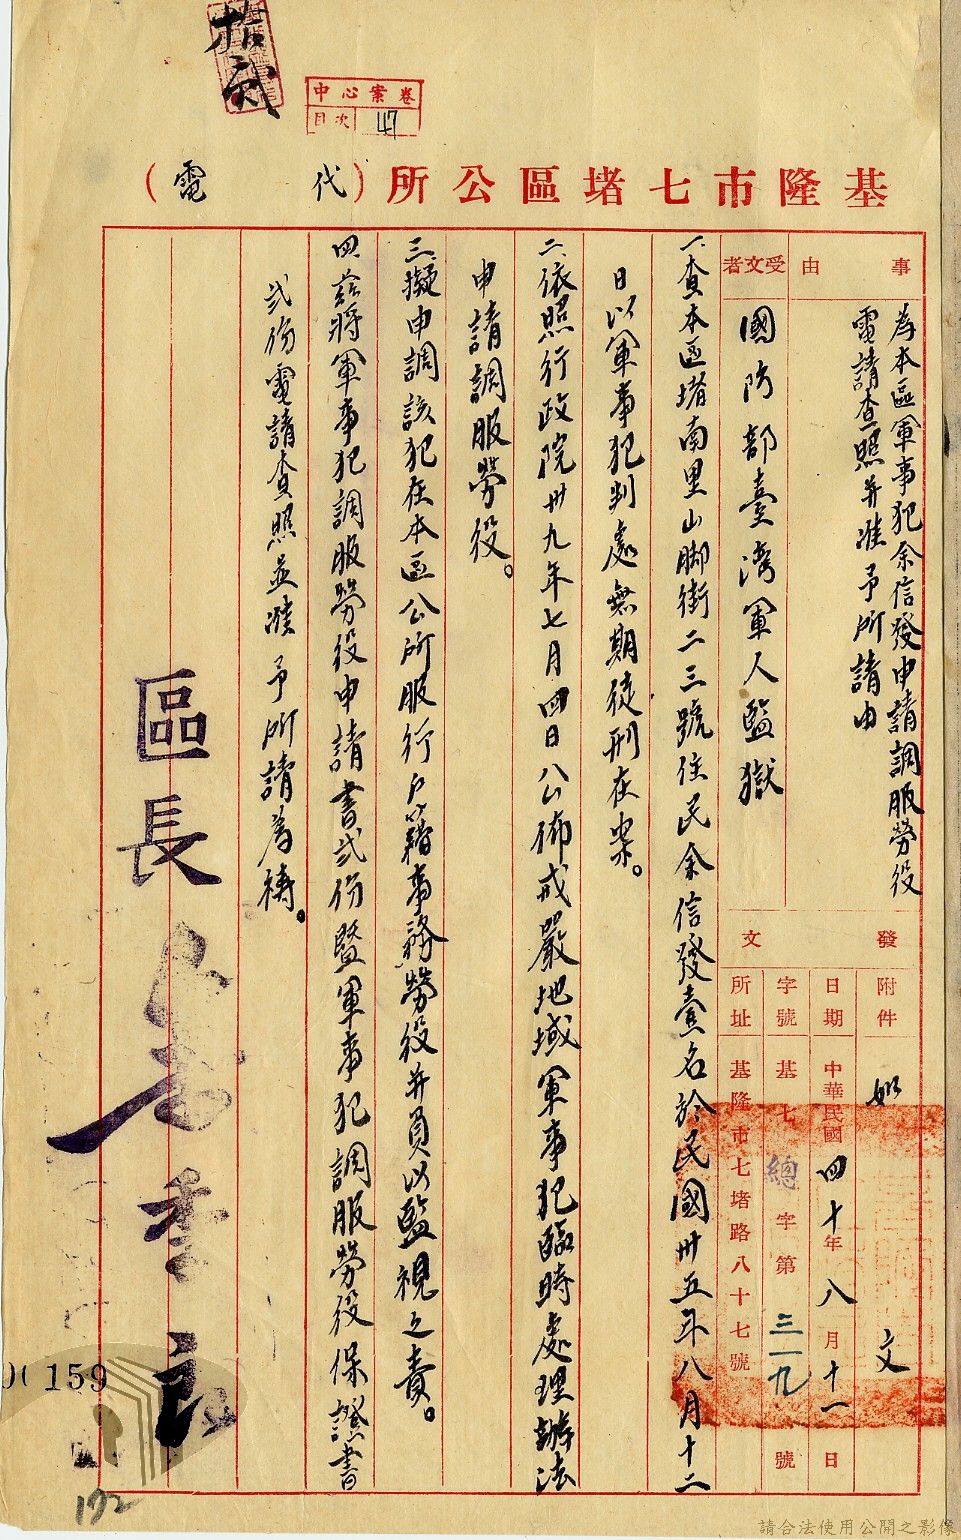 拾貳
中心案卷
目次 47
基隆市七堵區公所（代電）
事由
為本區軍事犯余信發申請調服勞役
電請查照并准予所請由
受文者
國防部臺灣軍人監獄
發文
附件 如文
日期 中華民國四十年八月十一日
字號 基七總字第三一九號
所址 基隆市七堵路八十七號
一、查本區堵南里山腳街二三號住民余信發壹名於民國卅五年八月十二
日以軍事犯判處無期徒刑在案。
二、依照行政院卅九年七月四日公佈戒嚴地域軍事犯臨時處理辦法
申請調服勞役。
三、擬申調該犯在本區公所服行户籍事務勞役并員以監視之責。
四、茲將軍事犯調服勞役申請書弍份暨軍事犯調服勞役保證書
弍份電請查照並准予所請為禱。
區長
159
192
請合法使用公開之影像